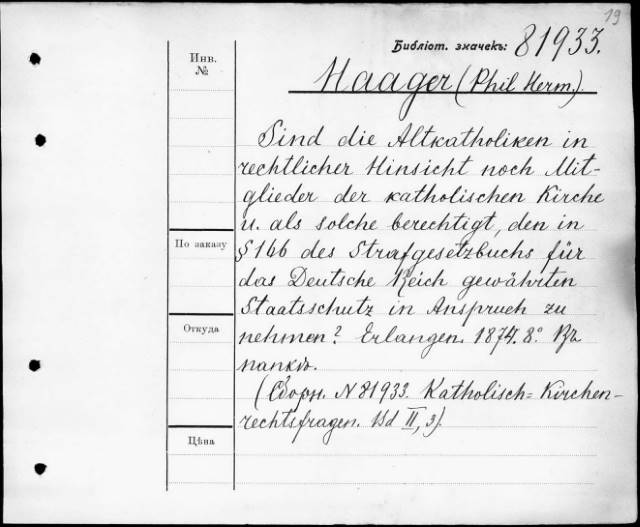 19
Библіот. значекъ: 81933.
Инв.
№
Haager (Phil Herm.)
Sind die Altkatholiken in
rechtlicher Hinsicht noch Mit-
glieder der katholischen Kirche
u. als solche berechtigt, den in
По заказу
§ 166 des Strafgesetzbuchs für
das Deutsche Reich gewährten
Staatsschutz in Anspruch zu
Откуда
nehmen? Erlangen. 1874. 8° Въ
папкѣ.
(Сборн. N 81933. Katholisch-Kirchen-
rechtsfragen. Bd II, 3).
Цѣна